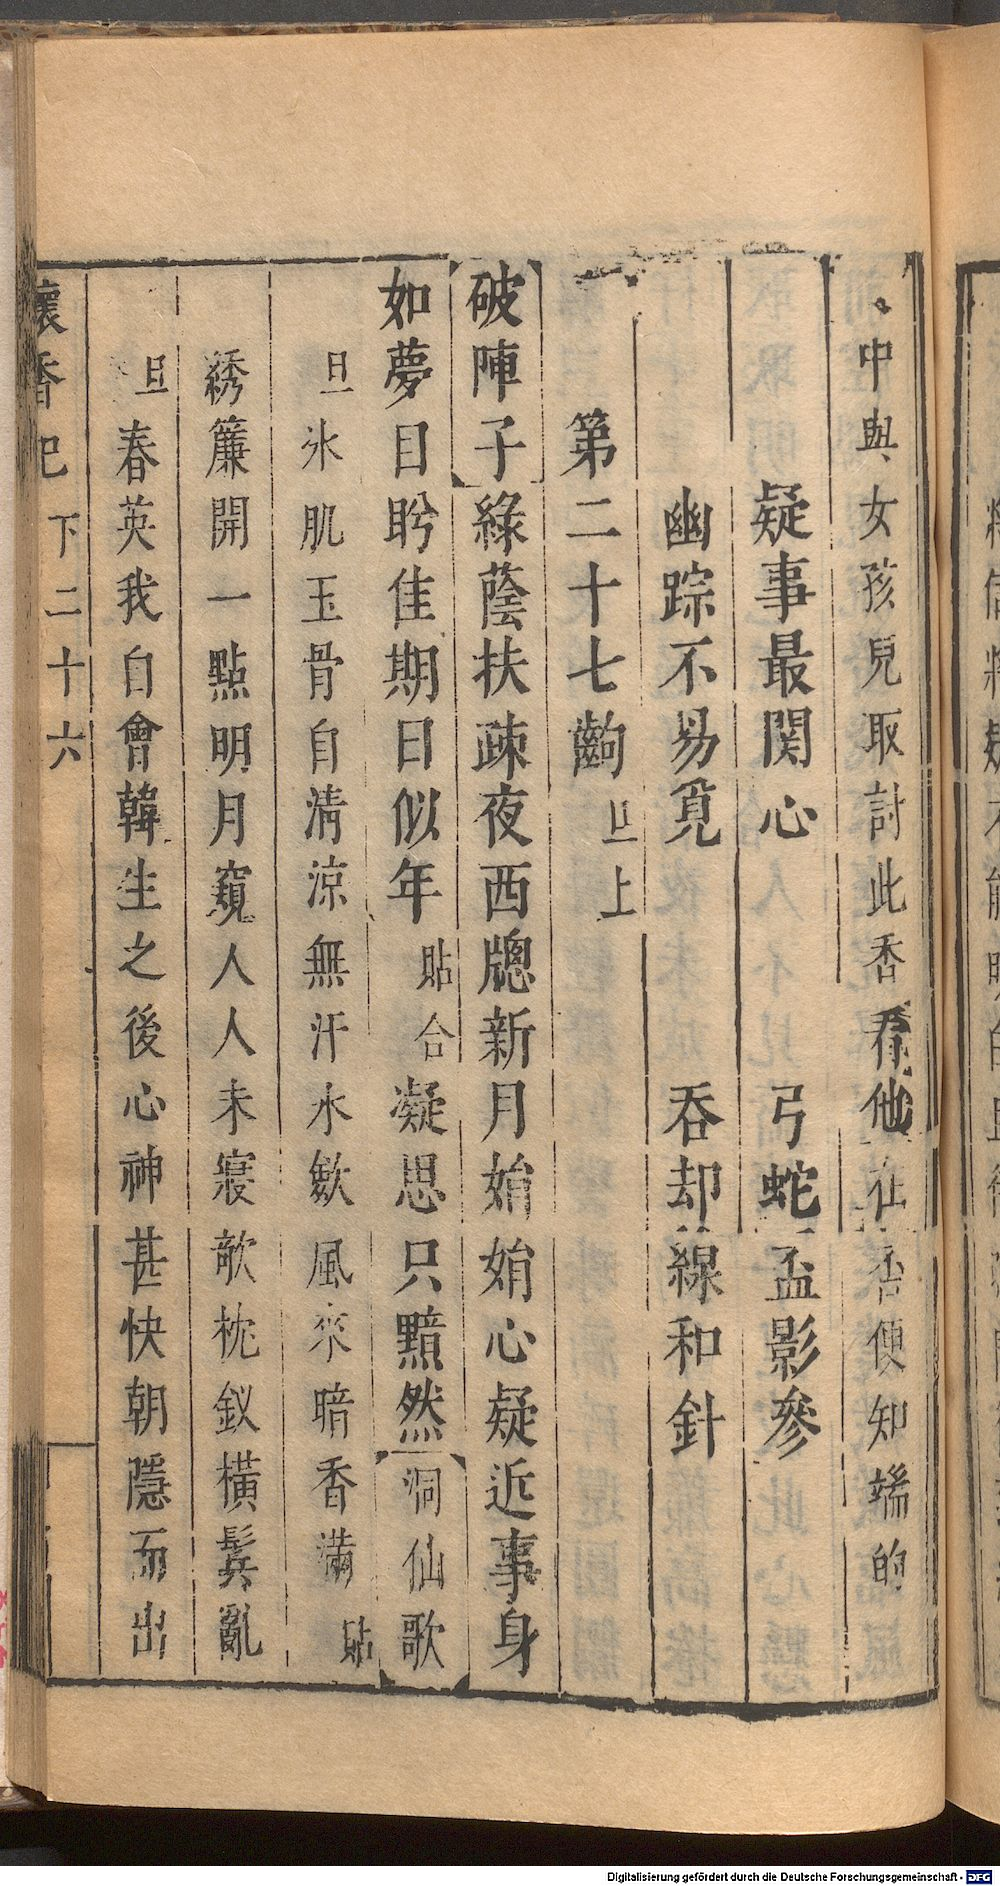 中與女孩兒取討此香看他在否便知端的
疑事最関心 弓蛇盃影參
幽踪不易覓 吞却線和針
第二十七齣 旦上
破陣子 綠蔭扶疎夜西牕新月始始娟心疑近事身
如夢目盻佳期日似年 貼合 凝思只黯然 洞仙歌
旦 氷肌玉骨自淸涼無汗水歛風來暗香滿 貼
綉簾開一點明月窺人人未寢欹枕釵橫鬂亂
旦 春英我自會韓生之後心神甚快朝隱而出
懷香記 下二十六
Digitalisierung gefördert durch die Deutsche Forschungsgemeinschaft - DFG